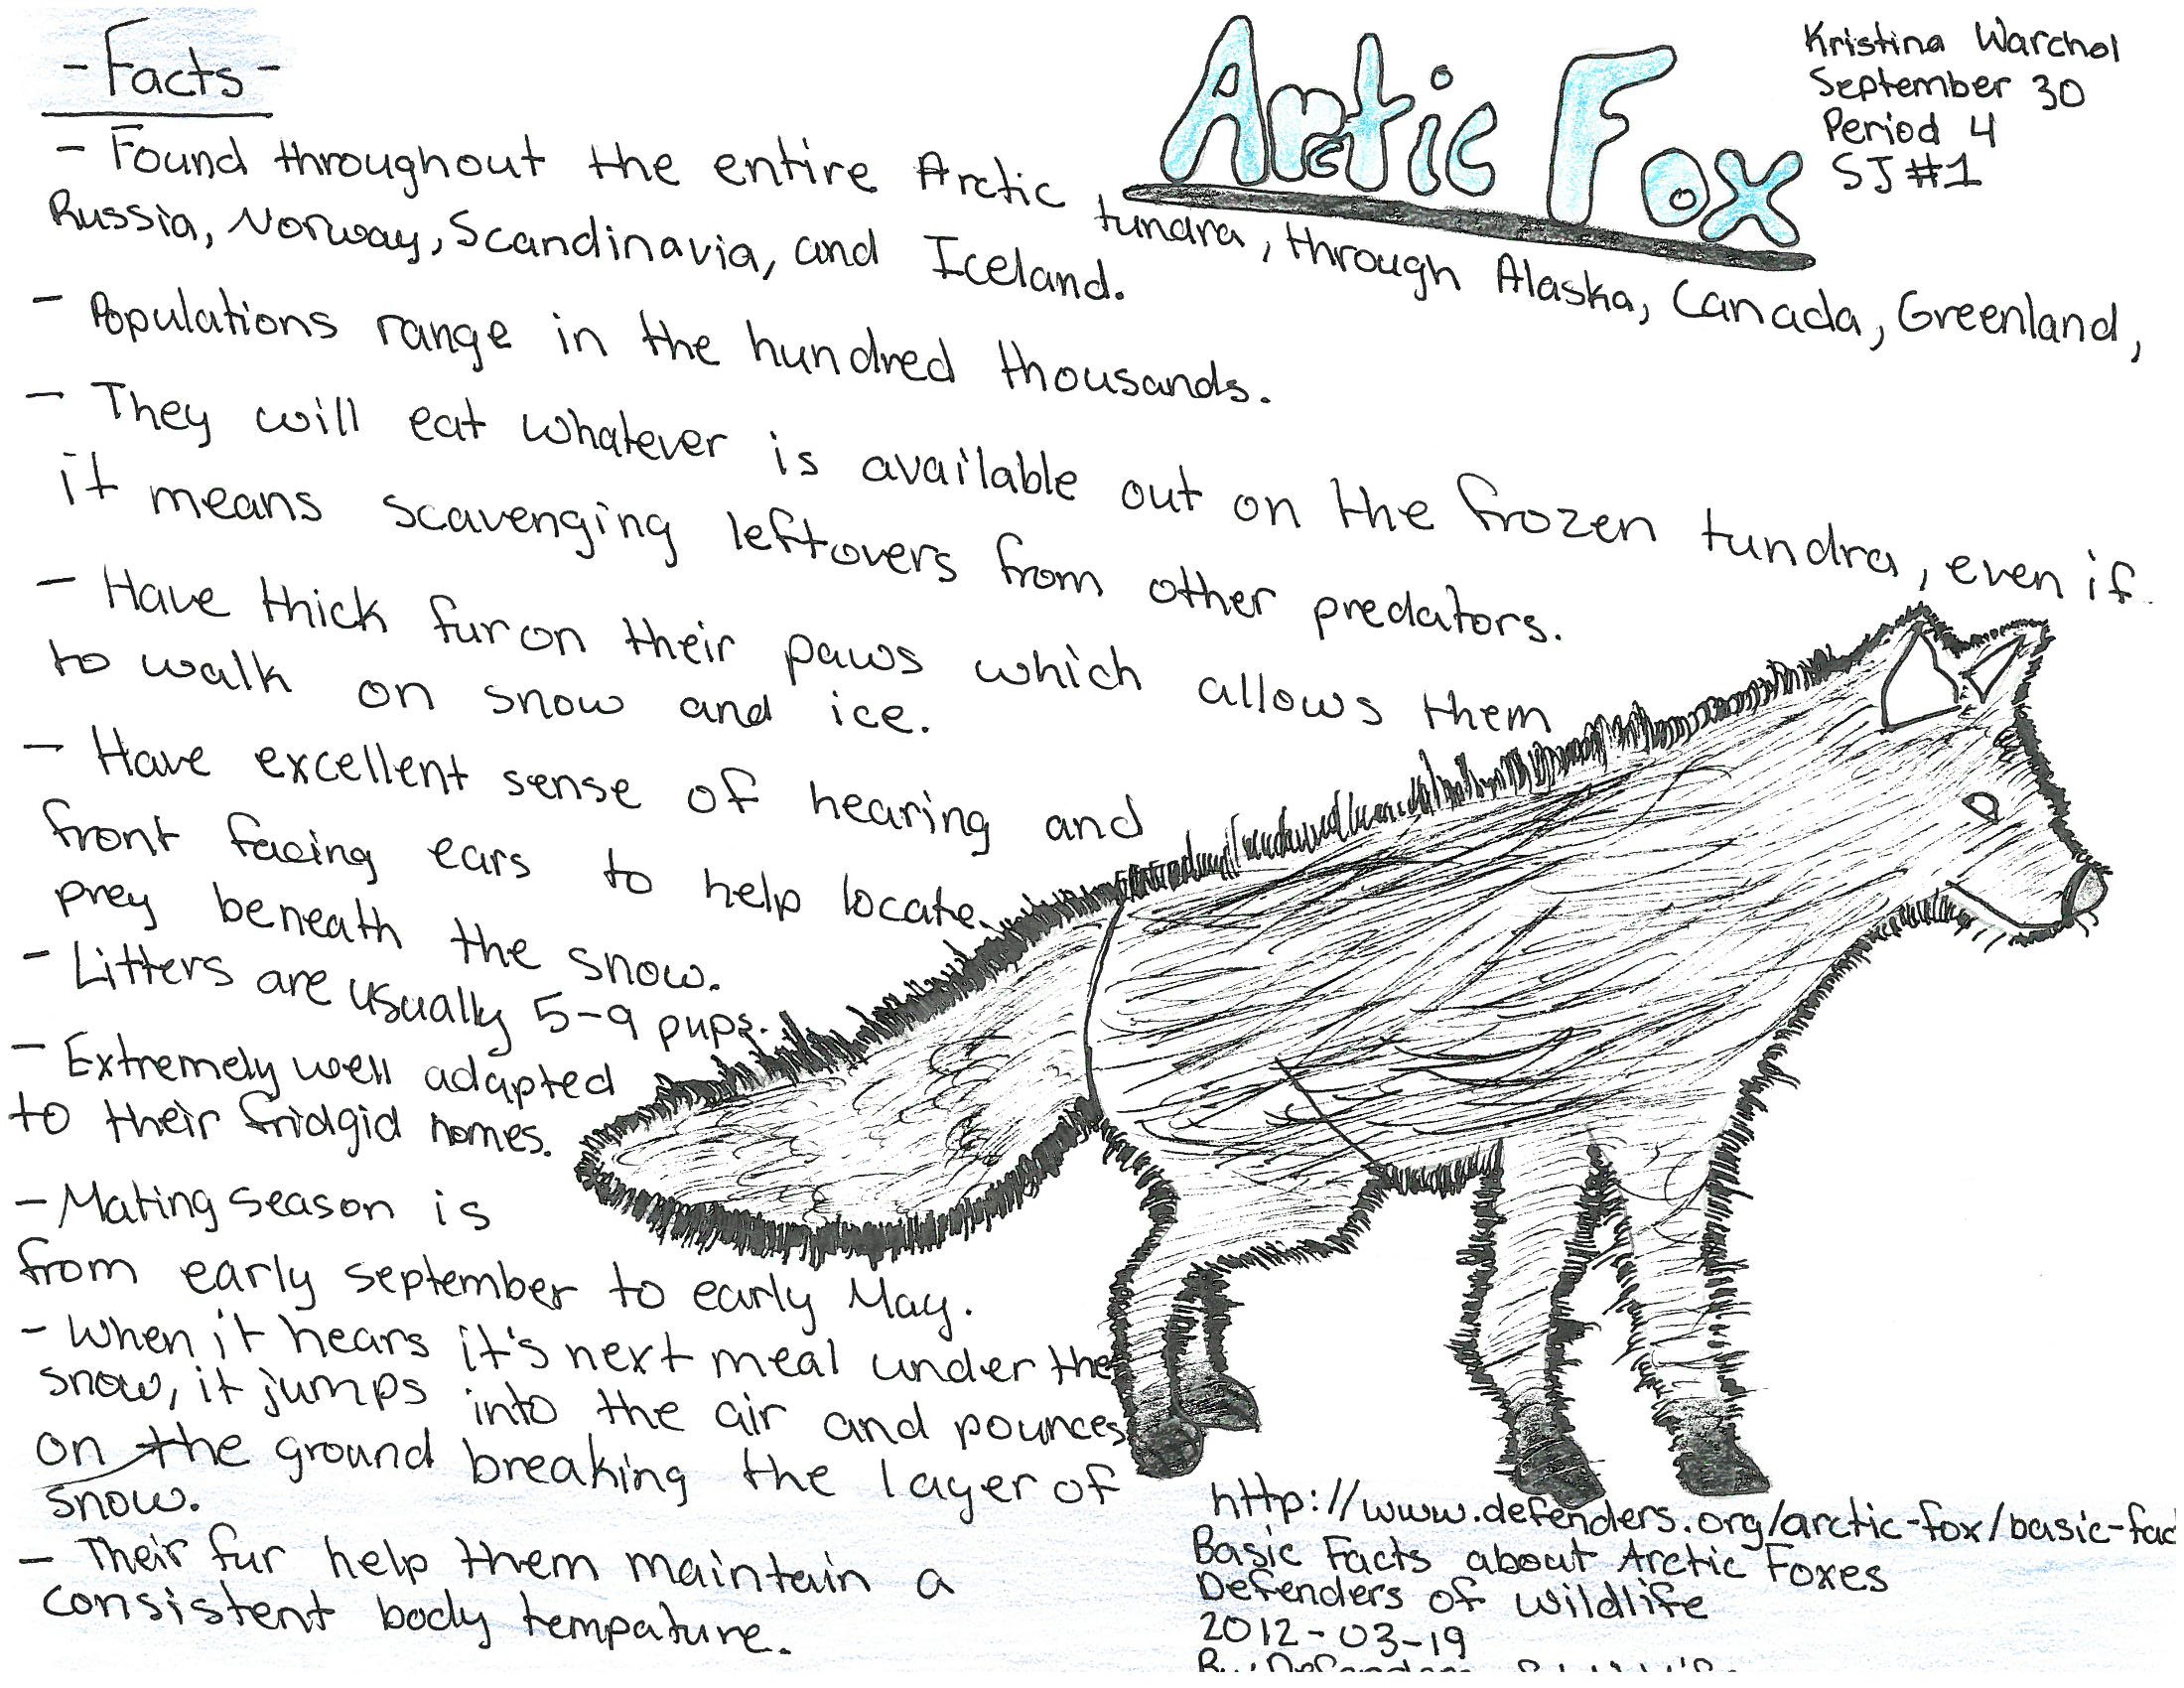 - Facts -
Arctic Fox
Kristina Warchol
September 30
Period 4
SJ #1
- Found throughout the entire Arctic tundra, through Alaska, Canada, Greenland,
Russia, Norway, Scandinavia, and Iceland.
- Populations range in the hundred thousands.
- They will eat whatever is available out on the frozen tundra, even if
it means scavenging leftovers from other predators.
- Have thick fur on their paws which allows them
to walk on snow and ice.
- Have excellent sense of hearing and
front facing ears to help locate
prey beneath the snow.
- Litters are usually 5-9 pups.
- Extremely well adapted
to their fridgid homes.
- Mating season is
from early september to early May.
- When it hears it's next meal under the
snow, it jumps into the air and pounces
on the ground breaking the layer of
snow.
- Their fur help them maintain a
consistent body tempature.
http://www.defenders.org/arctic-fox/basic-fac
Basic Facts about Arctic Foxes
Defenders of Wildlife
2012-03-19